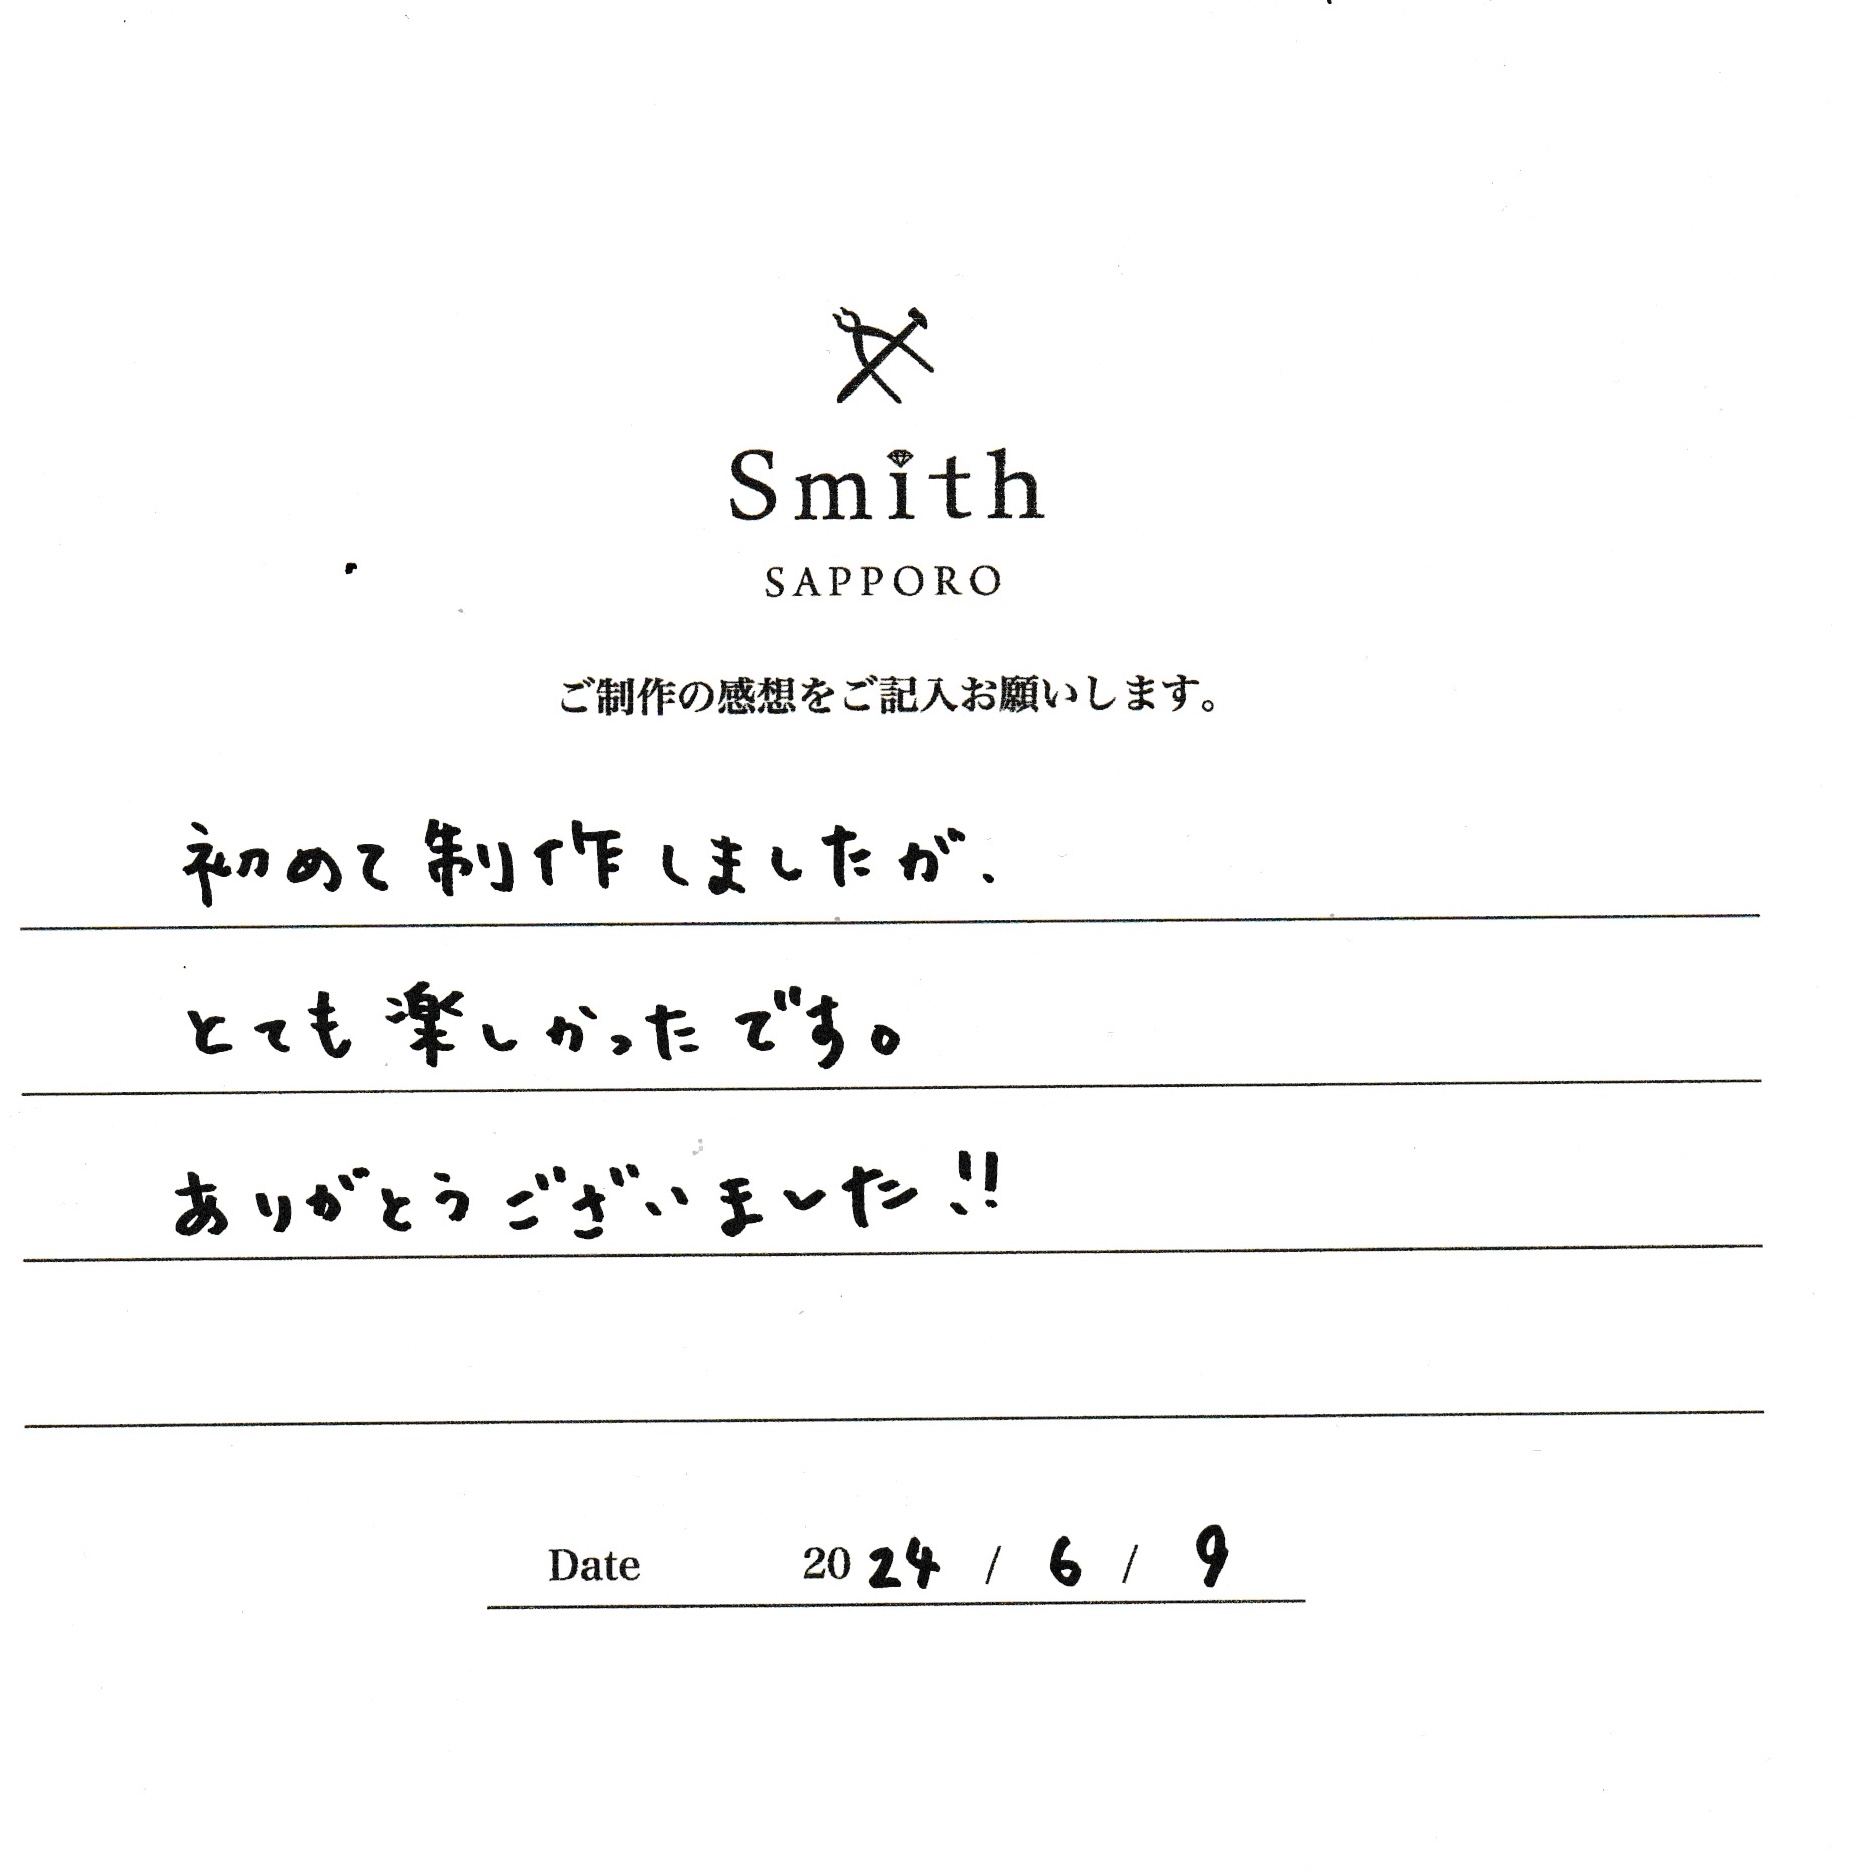 Smith
SAPPORO
ご制作の感想をご記入お願いします。
初めて制作しましたが、
とても楽しかったです。
ありがとうございました!!
Date 2024 / 6 / 9